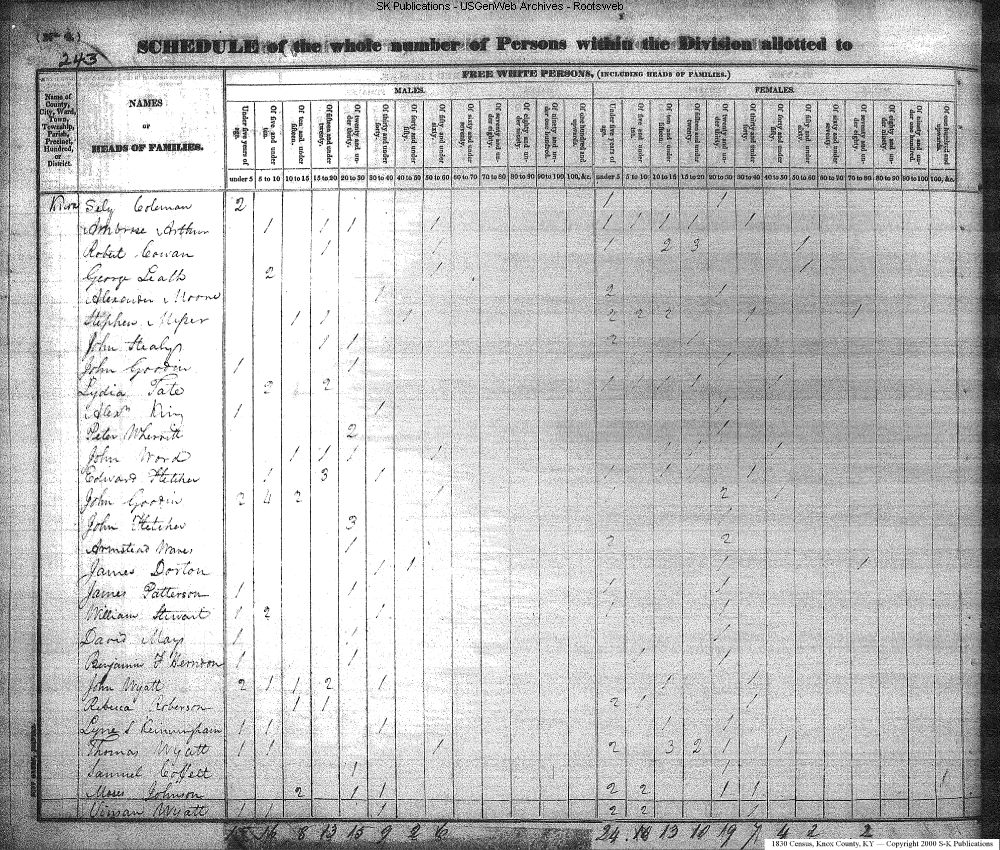 SK Publications - USGenWeb Archives - Rootsweb
(No 4.)
243
SCHEDULE of the whole number of Persons within the Division allotted to
FREE WHITE PERSONS, (INCLUDING HEADS OF FAMILIES.)
MALES. FEMALES.
Name of County, City, Ward, Town, Township, Parish, Precinct, Hundred, or District.
NAMES
or
HEADS OF FAMILIES.
Under five years of age. Of five and under ten. Of ten and under fifteen. Of fifteen and under twenty. Of twenty and under thirty. Of thirty and under forty. Of forty and under fifty. Of fifty and under sixty. Of sixty and under seventy. Of seventy and under eighty. Of eighty and under ninety. Of ninety and under one hundred. Of one hundred and upwards. Under five years of age. Of five and under ten. Of ten and under fifteen. Of fifteen and under twenty. Of twenty and under thirty. Of thirty and under forty. Of forty and under fifty. Of fifty and under sixty. Of sixty and under seventy. Of seventy and under eighty. Of eighty and under ninety. Of ninety and under one hundred. Of one hundred and upwards.
under 5 5 to 10 10 to 15 15 to 20 20 to 30 30 to 40 40 to 50 50 to 60 60 to 70 70 to 80 80 to 90 90 to 100 100, &c. under 5 5 to 10 10 to 15 15 to 20 20 to 30 30 to 40 40 to 50 50 to 60 60 to 70 70 to 80 80 to 90 90 to 100 100, &c.
Coleman 2 1 1
Ambrose Arthur 1 1 1 1 1 1 1 1 1
Robert Cowan 1 1 1 2 3 1
George 2 1
Alexander Moore 1 2 1
Stephen 1 1 1 2 2 2 1 1
John 1 1 2 1
John Goodin 1 1 1
Lydia Tate 2 2 1 1 1 1 1
Alexr King 1 1 1
Peter 2 1
John Word 1 1 1 1 1 1 1 1
Edward Fletcher 1 3 1 1 1 1 1
John Goodin 2 4 2 1 1 2 1
John Fletcher 3 1
Armstead 1 2 2
James Dorton 1 1 1 1
James Patterson 1 1 1 1
William Stewart 1 2 1 1 1
David Mays 1 1 1
Benjamin F Herndon 1 1 1 1
John Wyatt 2 1 1 2 1 1 1
Rebecca Roberson 1 1 2 1 1
1 1 1 1 1
Thomas Wyatt 1 1 1 2 3 2 1 1
Samuel 1 1 1
Moses Johnson 2 1 1 2 2 1 1
Wyatt 1 1 1 2 2 1
15 16 8 13 15 9 2 6 24 18 13 10 19 7 4 2 2
1830 Census, Knox County, KY — Copyright 2000 S-K Publications